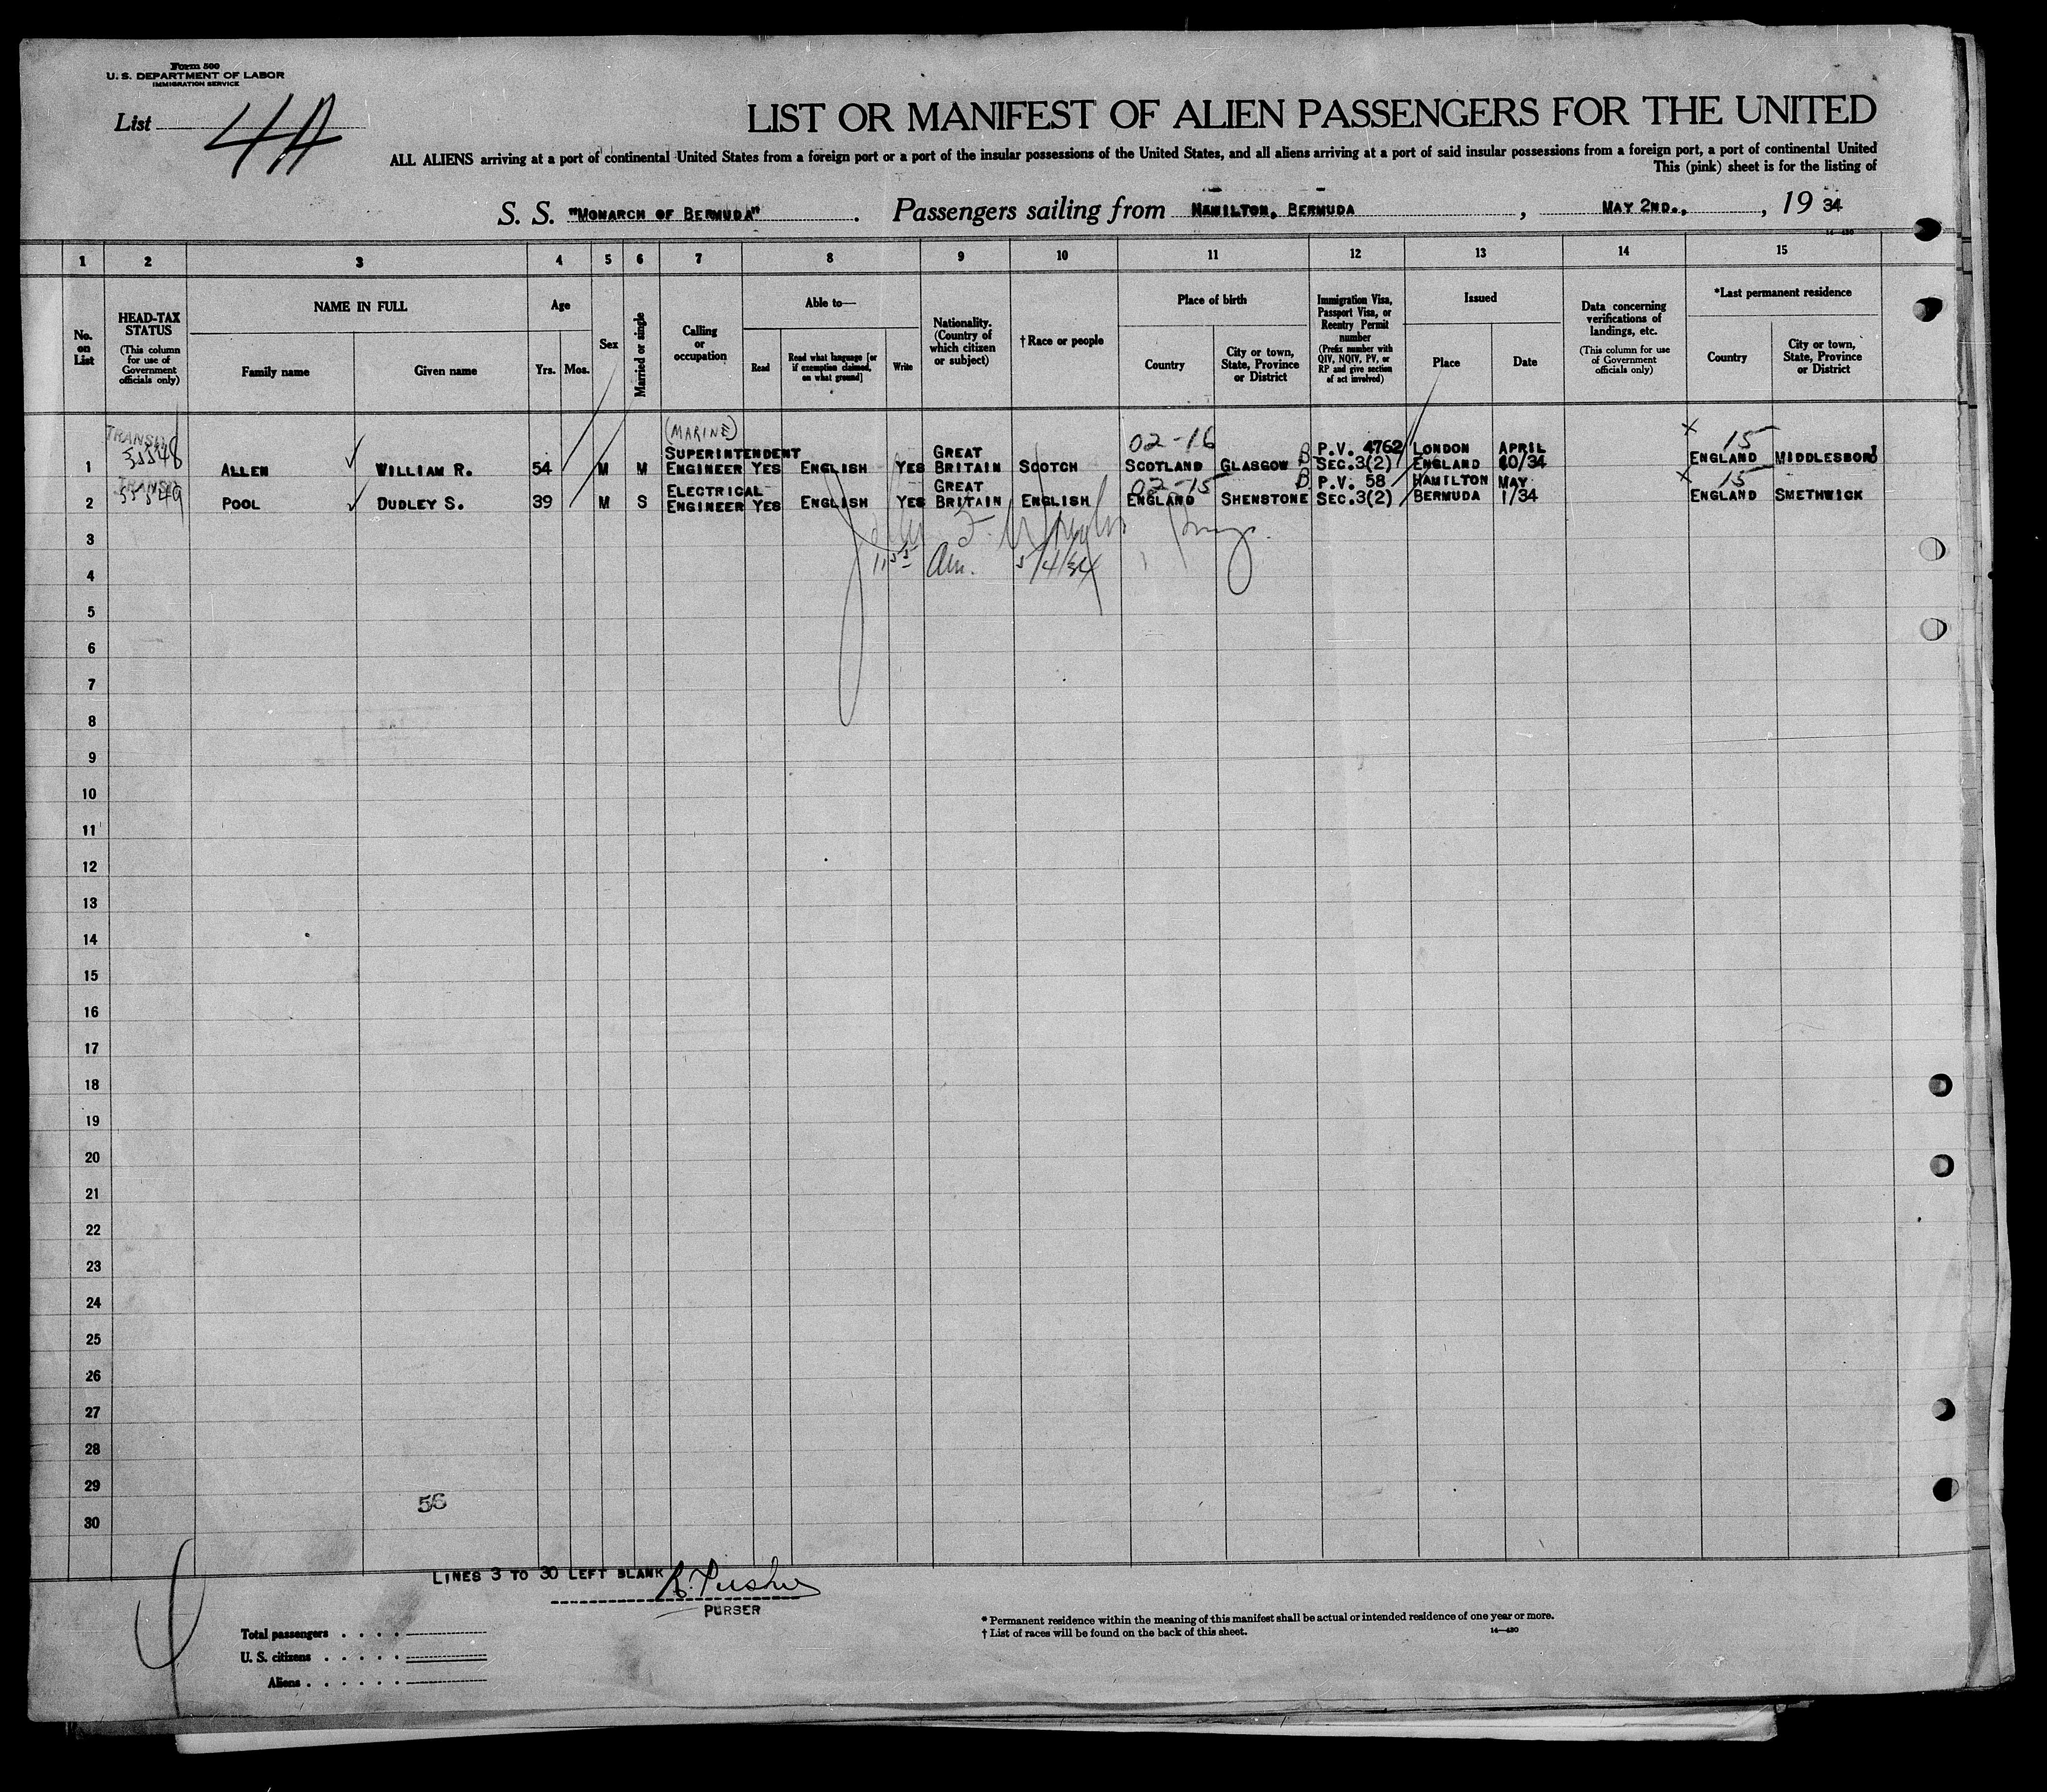 Form 500
U. S. DEPARTMENT OF LABOR
IMMIGRATION SERVICE
List 4A
LIST OR MANIFEST OF ALIEN PASSENGERS FOR THE UNITED
ALL ALIENS arriving at a port of continental United States from a foreign port or a port of the insular possessions of the United States, and all aliens arriving at a port of said insular possessions from a foreign port, a port of continental United
This (pink) sheet is for the listing of
S. S. "MONARCH OF BERMUDA" . Passengers sailing from HAMILTON, BERMUDA , MAY 2ND., , 19 34
14-430
1 2 3 4 5 6 7 8 9 10 11 12 13 14 15
No. on List
HEAD-TAX STATUS
(This column for use of Government officials only)
NAME IN FULL
Family name
Given name
Age
Yrs.
Mos.
Sex
Married or single
Calling or occupation
Able to—
Read
Read what language [or if exemption claimed, on what ground]
Write
Nationality. (Country of which citizen or subject)
† Race or people
Place of birth
Country
City or town, State, Province or District
Immigration Visa, Passport Visa, or Reentry Permit number
(Prefix number with QIV, NQIV, PV, or RP and give section of act involved)
Issued
Place
Date
Data concerning verifications of landings, etc.
(This column for use of Government officials only)
*Last permanent residence
Country
City or town, State, Province or District
TRANSIT (MARINE) 02-16 X 15
SUPERINTENDENT GREAT P.V. 4762 LONDON APRIL
1 ALLEN ✓ WILLIAM R. 54 M M ENGINEER YES ENGLISH YES BRITAIN SCOTCH SCOTLAND GLASGOW B SEC.3(2) ENGLAND 10/34 ENGLAND MIDDLESBORO
TRANSIT ELECTRICAL GREAT 02-15 B P.V. 58 HAMILTON MAY X 15
2 POOL ✓ DUDLEY S. 39 M S ENGINEER YES ENGLISH YES BRITAIN ENGLISH ENGLAND SHENSTONE SEC.3(2) BERMUDA 1/34 ENGLAND SMETHWICK
3
4 1155 Am. 5/4/34
5
6
7
8
9
10
11
12
13
14
15
16
17
18
19
20
21
22
23
24
25
26
27
28
29
56
30
LINES 3 TO 30 LEFT BLANK
PURSER
Total passengers . . . .
U. S. citizens . . . . .
Aliens . . . . . .
* Permanent residence within the meaning of this manifest shall be actual or intended residence of one year or more.
† List of races will be found on the back of this sheet.
14—430